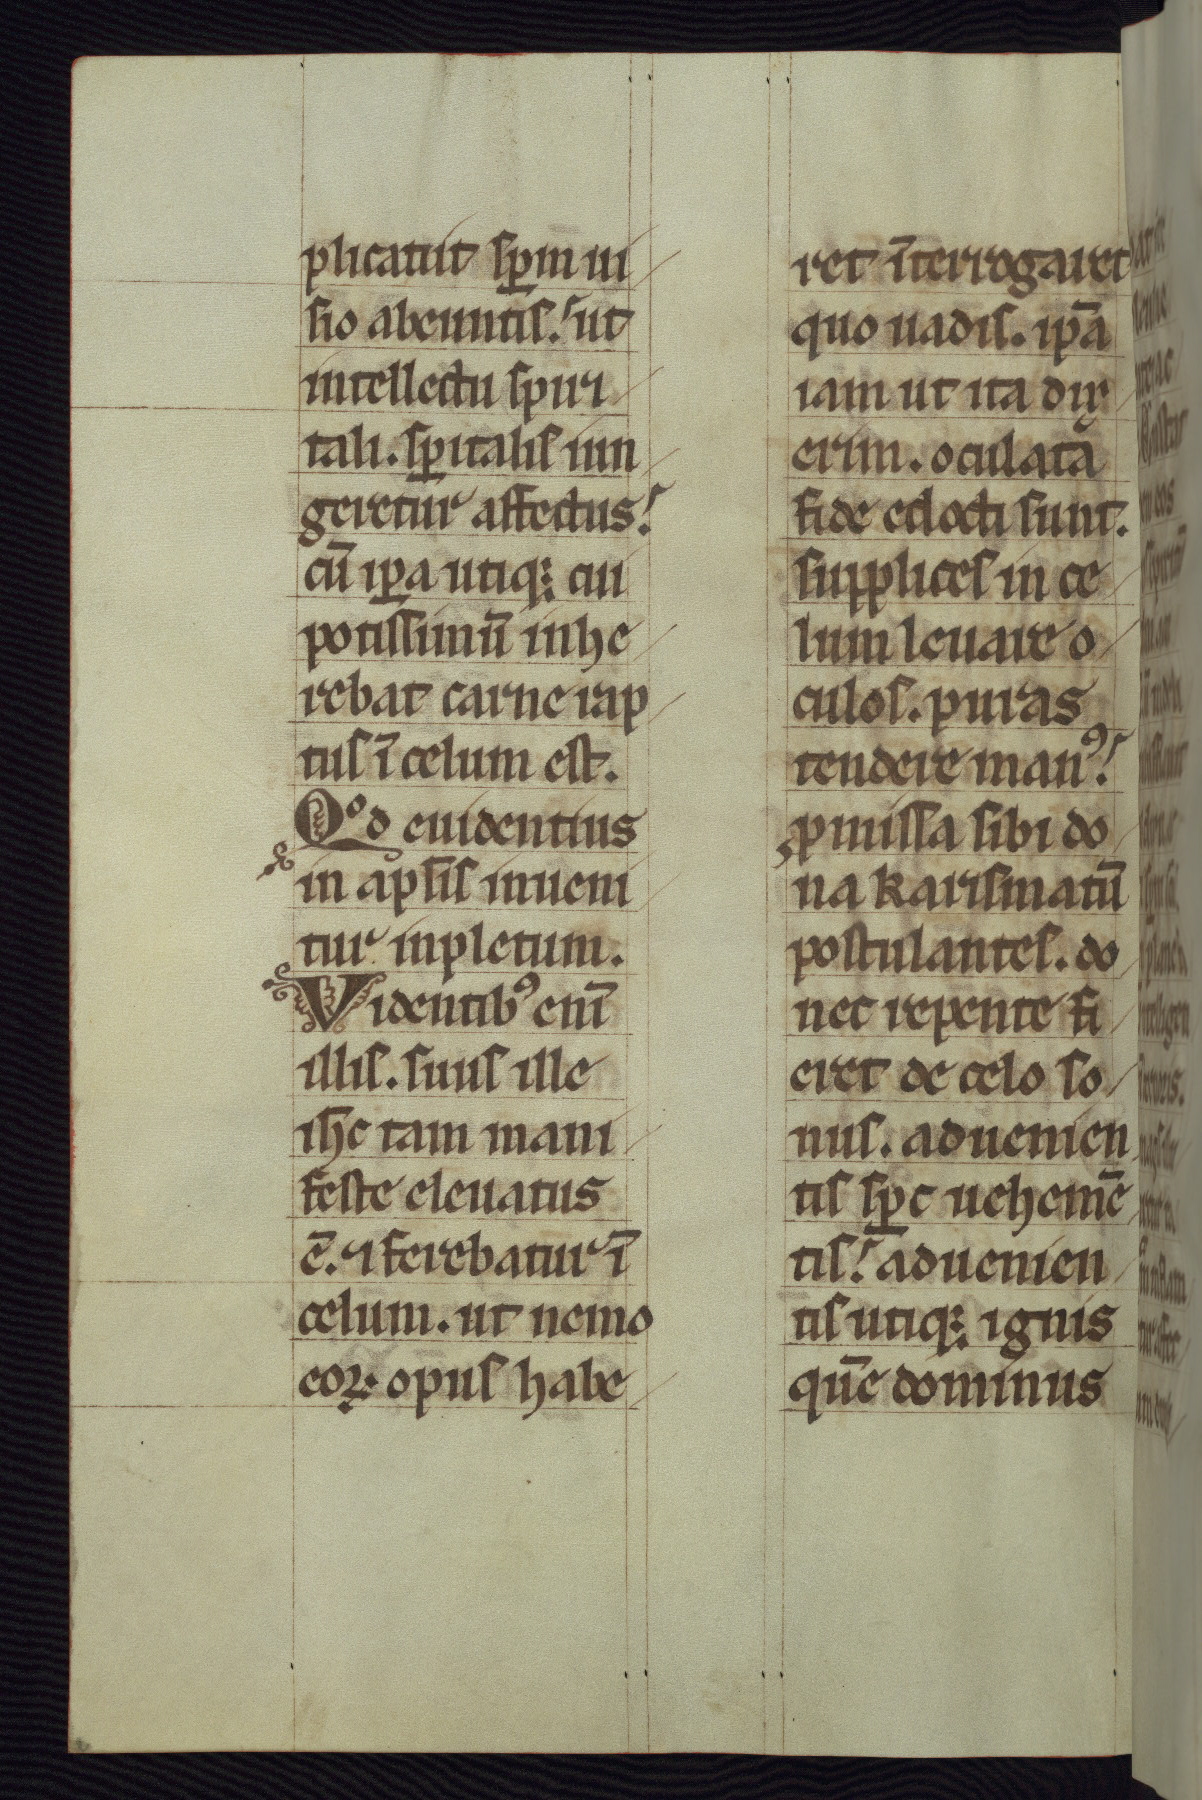 plicauit sp̅m ui
sio abeuntis. ut
intellectu spiri
tali. sp̅italis iun
geretur affectus.
cū ip̅a utiq; cui
potissimū inhe
rebat carne rap
tus ī celum est.
Qͦd euidentius
in aplīs inueni
tur inpletum.
Videntibꝰ enī
illis. suus ille
ih̅c tam mani
feste eleuatus
ē. ⁊ ferebatur ī
celum. ut nemo
eoꝝ opus habe
ret īterrogaret
quo uadis. ip̅a
iam ut ita dix
erim. oculata
fide edocti sunt.
supplices in ce
lum leuare o
culos. puras
tendere manꝰ.
ꝓmissa sibi do
na karismatū
postulantes. do
nec repente fi
eret de celo so
nus. aduenien
tis sp̅c uehemē
tis. aduenien
tis utiq; ignis
quē dominus